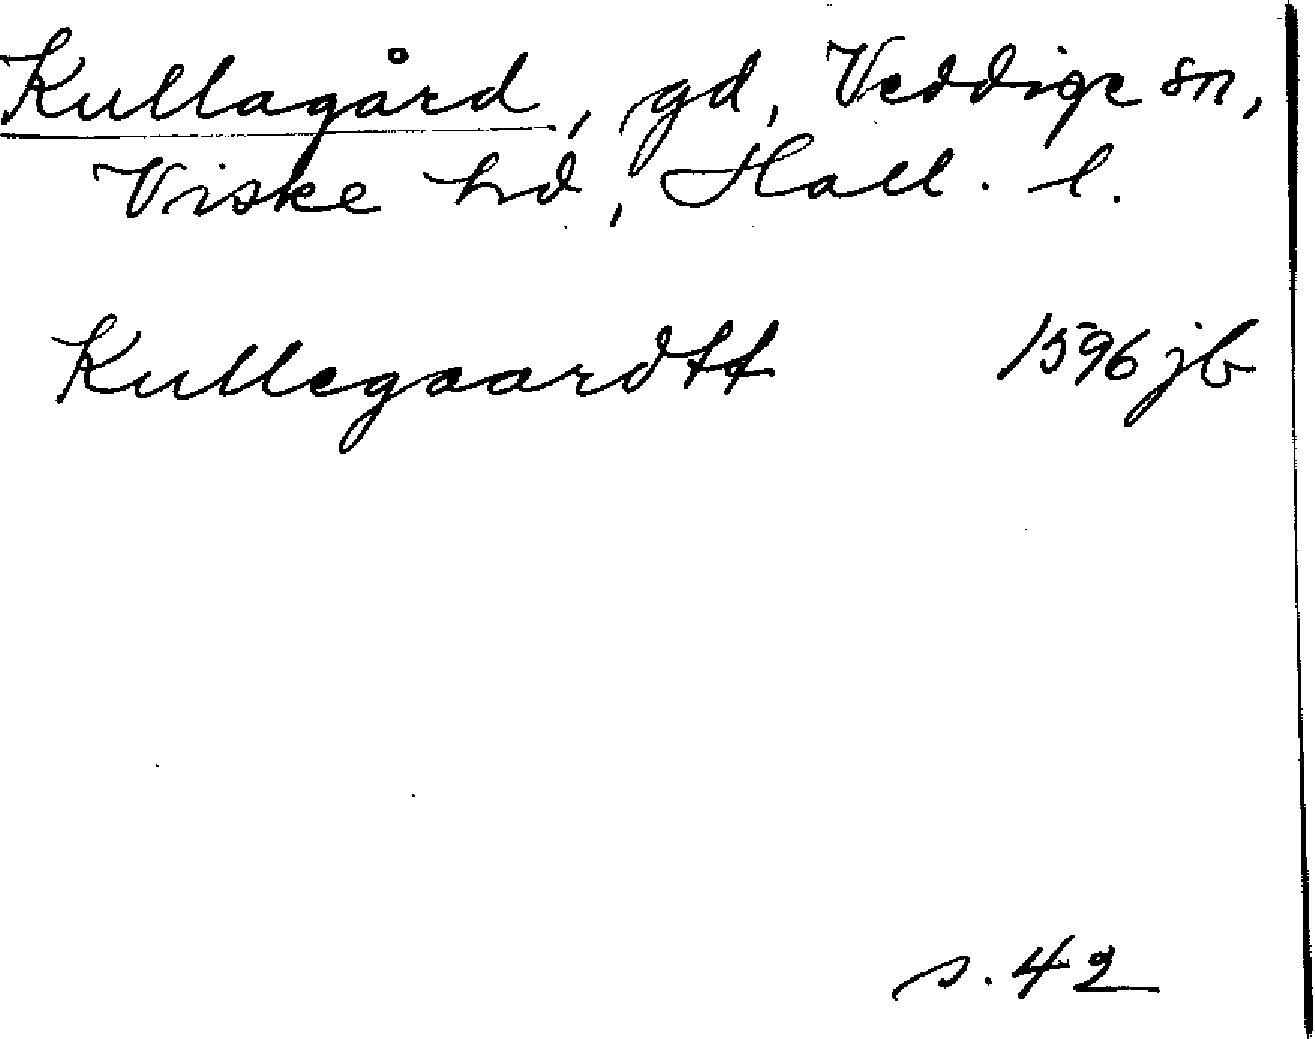 Kullagård, gd, Veddige sn,
Viske hd, Hall. l.
Kullegaardtt 1596 jb
s. 42